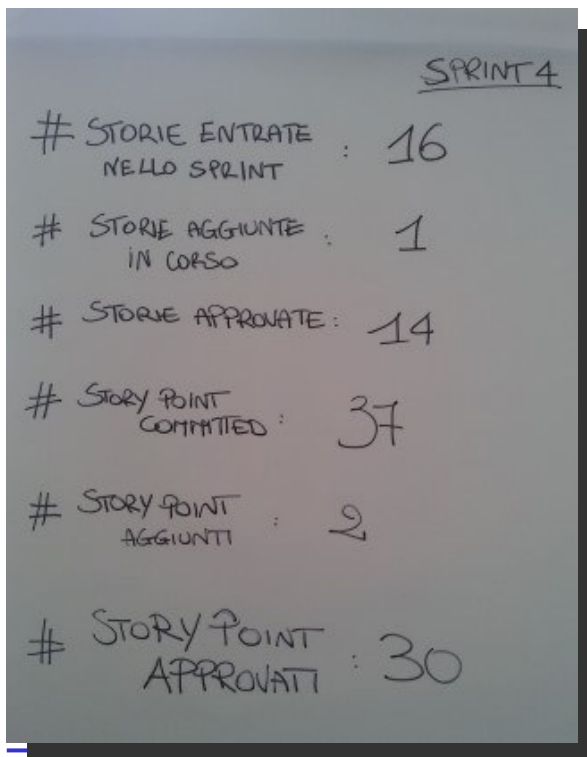 SPRINT 4
# STORIE ENTRATE
NELLO SPRINT : 16
# STORIE AGGIUNTE
IN CORSO : 1
# STORIE APPROVATE: 14
# STORY POINT
COMMITTED: 37
# STORY POINT
AGGIUNTI : 2
# STORY POINT
APPROVATI : 30